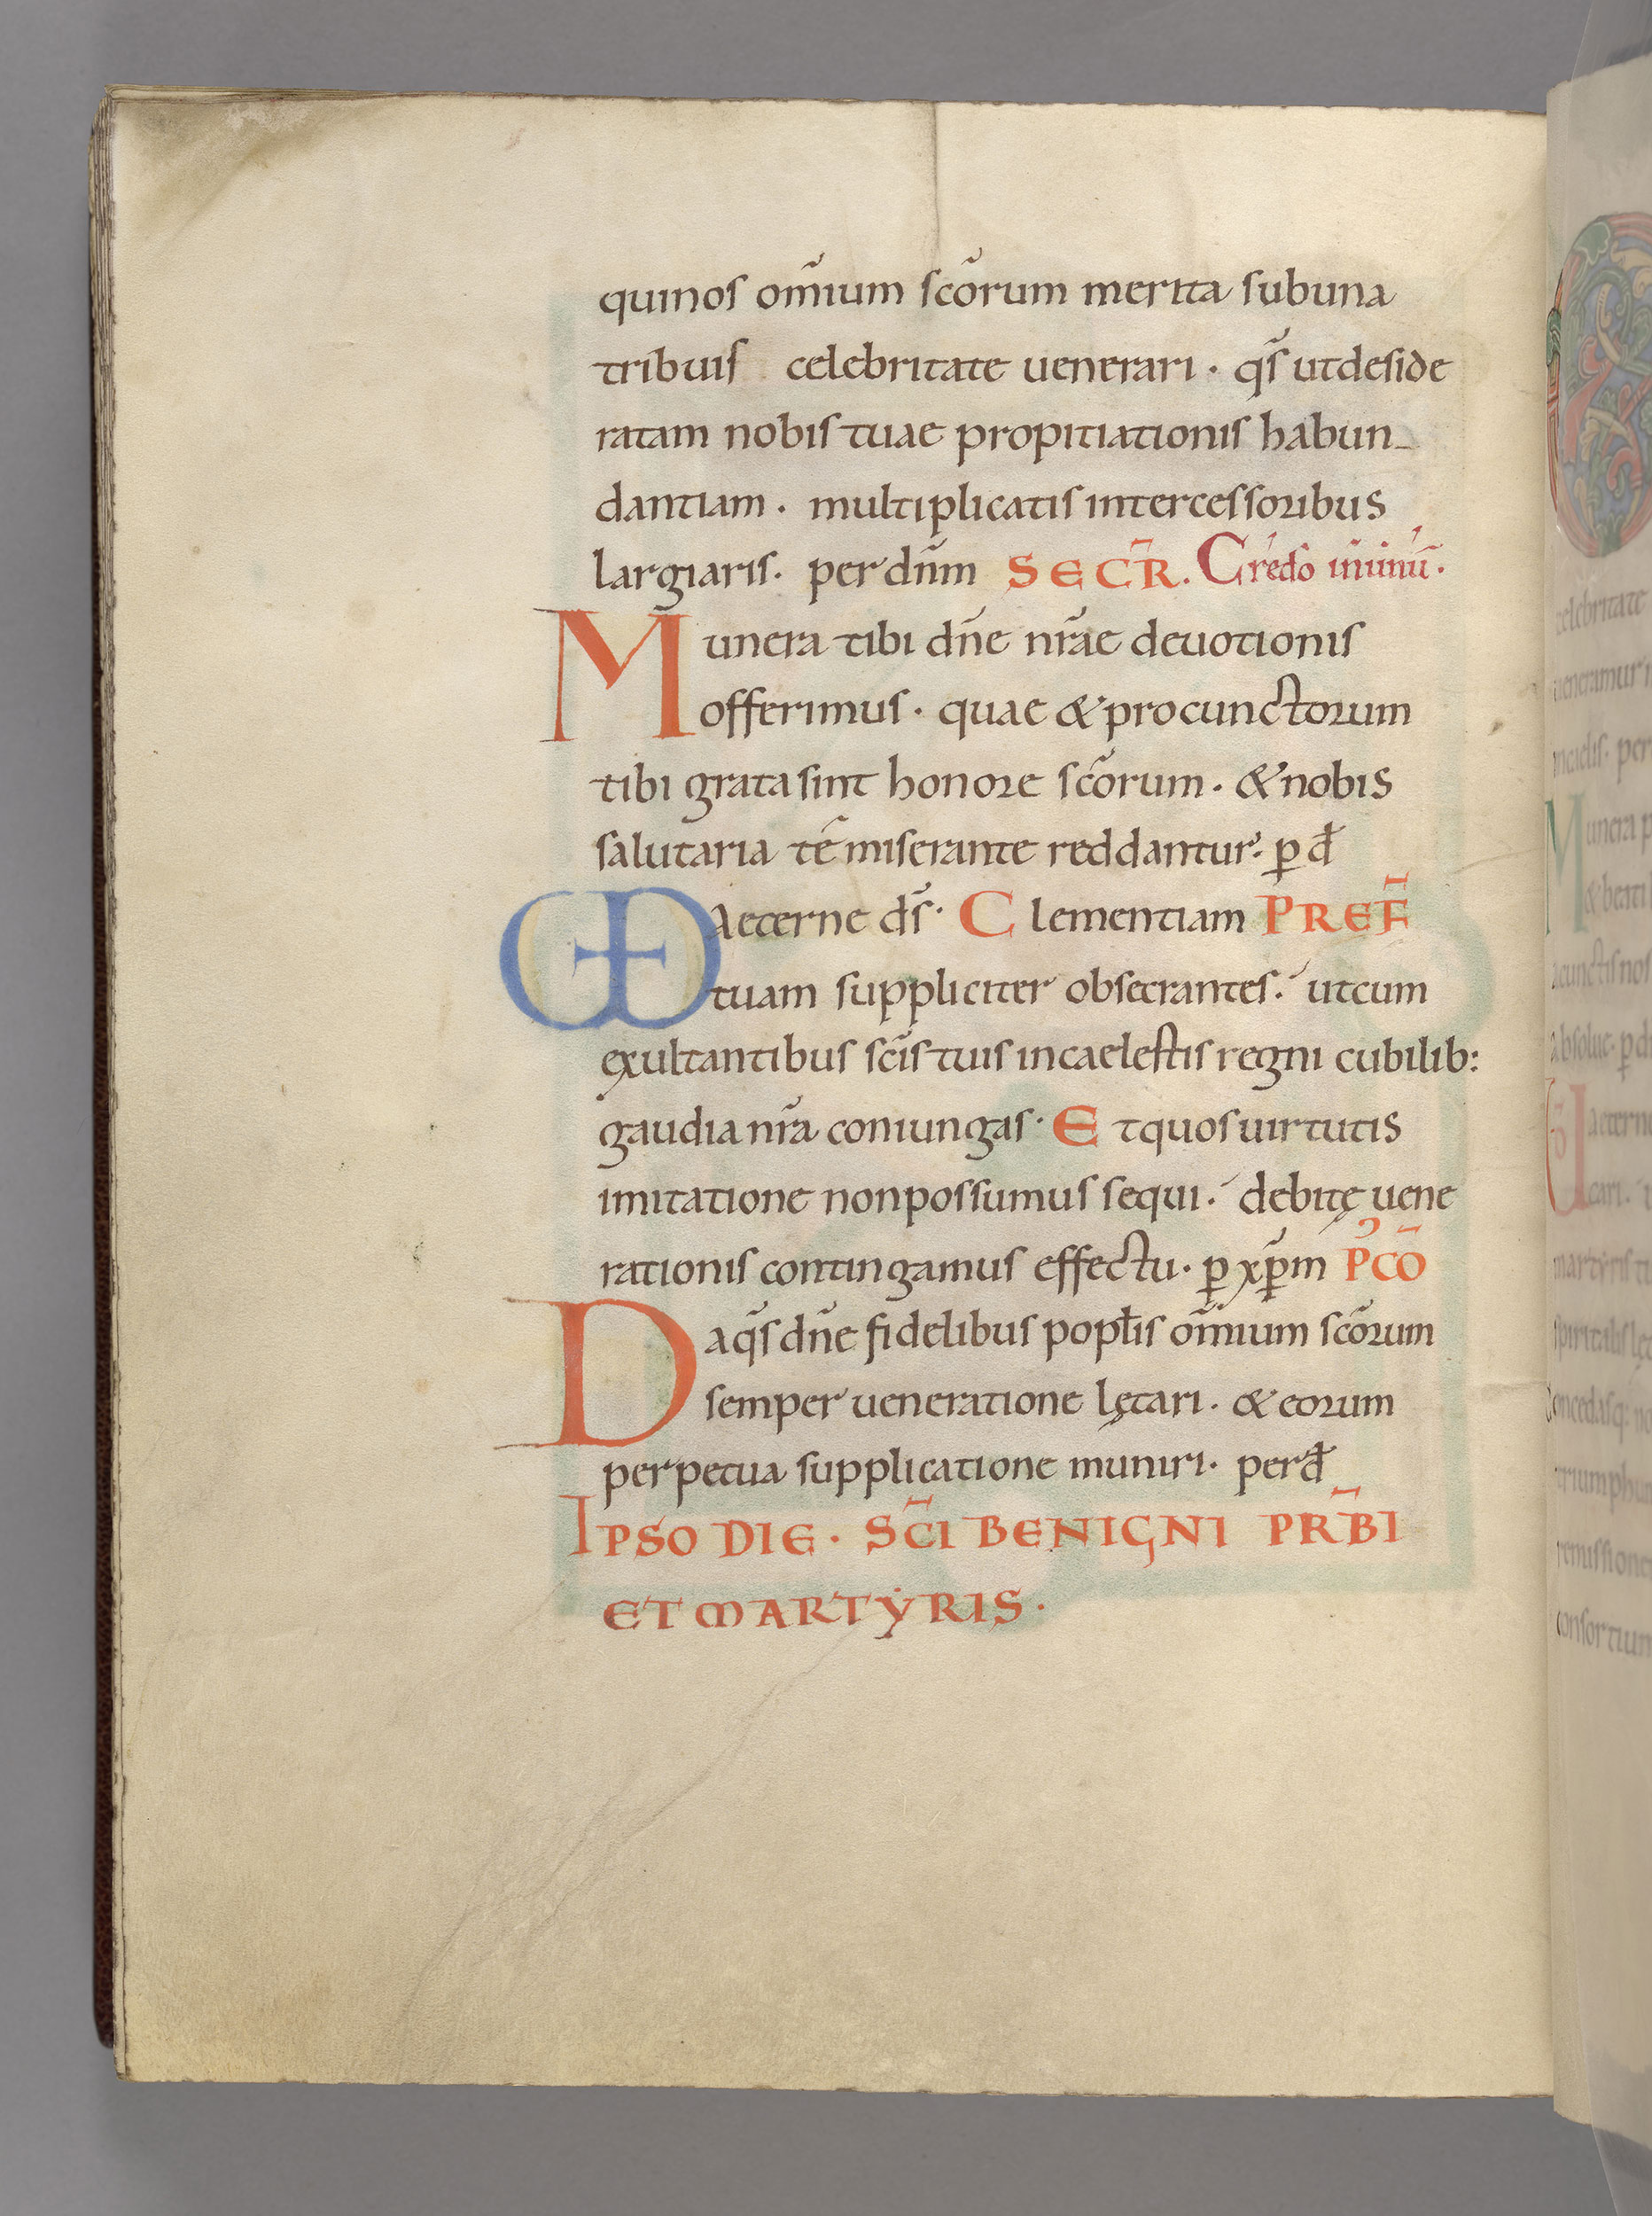 quinos om̃ium sc̃orum merita sub una
tribuis celebritate uenerari · q̃s ut deside
ratam nobis tuae propitiationis habun
dantiam · multiplicatis intercessoribus
largiaris · per dñm SECR̃. Credo in unũ ·
Munera tibi dñe nr̃ae deuotionis
offerimus · quae & pro cunctorum
tibi grata sint honore sc̃orum · & nobis
salutaria te miserante reddantur · p̱ đ
UD Aeterne d̃s · Clementiam PREF̃
tuam suppliciter obsecrantes · ut cum
exultantibus sc̃is tuis in caelestis regni cubilib:
gaudia nr̃a coniungas · Et quos uirtutis
imitatione non possumus sequi · debitę uene
rationis contingamus effectu · p̱ xp̃m PCÕ
Da q̃s dñe fidelibus popłis om̃ium sc̃orum
semper ueneratione lętari · & eorum
perpetua supplicatione muniri · per đ
IPSO DIE · SC̃I BENIGNI PR̃BI
ET MARTẎRIS ·
celebritate
ueneramur
per
Munera
& beati
cunctis nos
absolue · p̱
aeterne
cari ·
martyris
spiritalis
concedas
triumphu
remissione
consortium